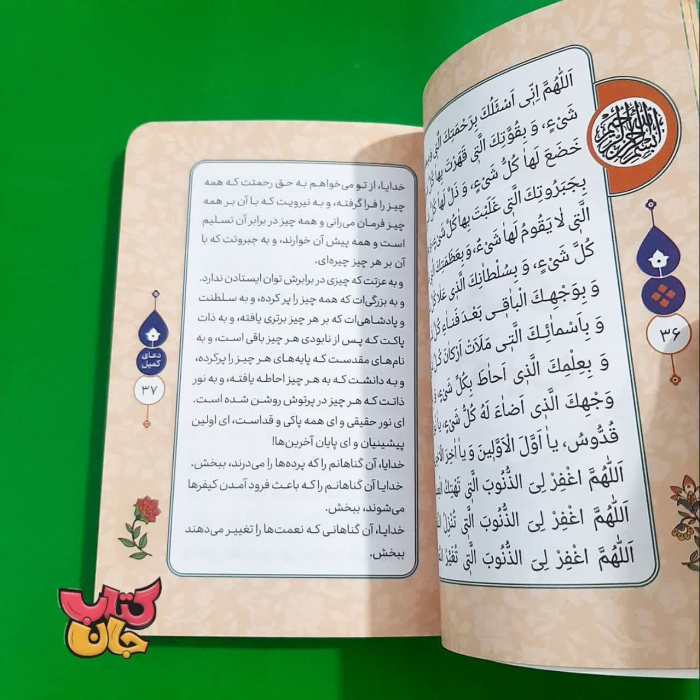 اَللّٰهُمَّ اِنّی اَسْئَلُكَ بِرَحْمَتِكَ الَّتی
شَیْءٍ، وَ بِقُوَّتِكَ الَّتی قَهَرْتَ بِها كُلَّ
خَضَعَ لَها كُلُّ شَیْءٍ، وَ ذَلَّ لَها كُلُّ
بِجَبَرُوتِكَ الَّتی غَلَبْتَ بِها كُلَّ شَیْءٍ
الَّتی لا یَقُومُ لَها شَیْءٌ، وَ بِعَظَمَتِكَ
كُلَّ شَیْءٍ، وَ بِسُلْطانِكَ الَّذی عَلا
وَ بِوَجْهِكَ الْباقی بَعْدَ فَناءِ كُلِّ
وَ بِاَسْمائِكَ الَّتی مَلَاَتْ اَرْكانَ كُلِّ
وَ بِعِلْمِكَ الَّذی اَحاطَ بِكُلِّ شَیْءٍ
وَجْهِكَ الَّذی اَضاءَ لَهُ كُلُّ شَیْءٍ، یا
قُدُّوسُ، یا اَوَّلَ الْاَوَّلینَ وَ یا اخِرَ
اَللّٰهُمَّ اغْفِرْ لِیَ الذُّنُوبَ الَّتی تَهْتِكُ
اَللّٰهُمَّ اغْفِرْ لِیَ الذُّنُوبَ الَّتی تُنْزِلُ
اَللّٰهُمَّ اغْفِرْ لِیَ الذُّنُوبَ الَّتی تُغَیِّرُ
۳۶
خدایا، از تو می‌خواهم به حق رحمتت که همه
چیز را فرا گرفته، و به نیرویت که با آن بر همه
چیز فرمان می‌رانی و همه چیز در برابر آن تسلیم
است و همه پیش آن خوارند، و به جبروتت که با
آن بر هر چیز چیره‌ای.
و به عزتت که چیزی در برابرش توان ایستادن ندارد.
و به بزرگی‌ات که همه چیز را پر کرده، و به سلطنت
و پادشاهی‌ات که بر هر چیز برتری یافته، و به ذات
پاکت که پس از نابودی هر چیز باقی است، و به
نام‌های مقدست که پایه‌های هر چیز را پرکرده،
و به دانشت که به هر چیز احاطه یافته، و به نور
ذاتت که هر چیز در پرتوش روشن شده است.
ای نور حقیقی و ای همه پاکی و قداست، ای اولین
پیشینیان و ای پایان آخرین‌ها!
خدایا، آن گناهانم را که پرده‌ها را می‌درند، ببخش.
خدایا آن گناهانم را که باعث فرود آمدن کیفرها
می‌شوند، ببخش.
خدایا، آن گناهانی که نعمت‌ها را تغییر می‌دهند
ببخش.
دعای
کمیل
۳۷
کتاب
جان